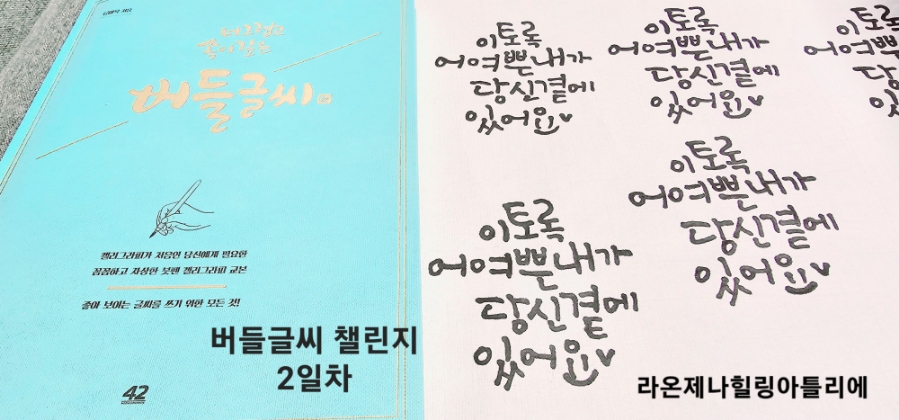 버들글씨
캘리그라피가 처음인 당신에게 필요한
꼼꼼하고 자상한 붓펜 캘리그라피 교본
좋아 보이는 글씨를 쓰기 위한 모든 것!
42
버들글씨 챌린지
2일차
이토록
어여쁜내가
당신곁에
있어요
이토록
어여쁜내가
당신곁에
있어요
이토록
어여쁜
당신
있어
이토록
어여쁜내가
당신곁에
있어요
이토록
어여쁜내가
당신곁에
있어요
라온제나힐링아틀리에